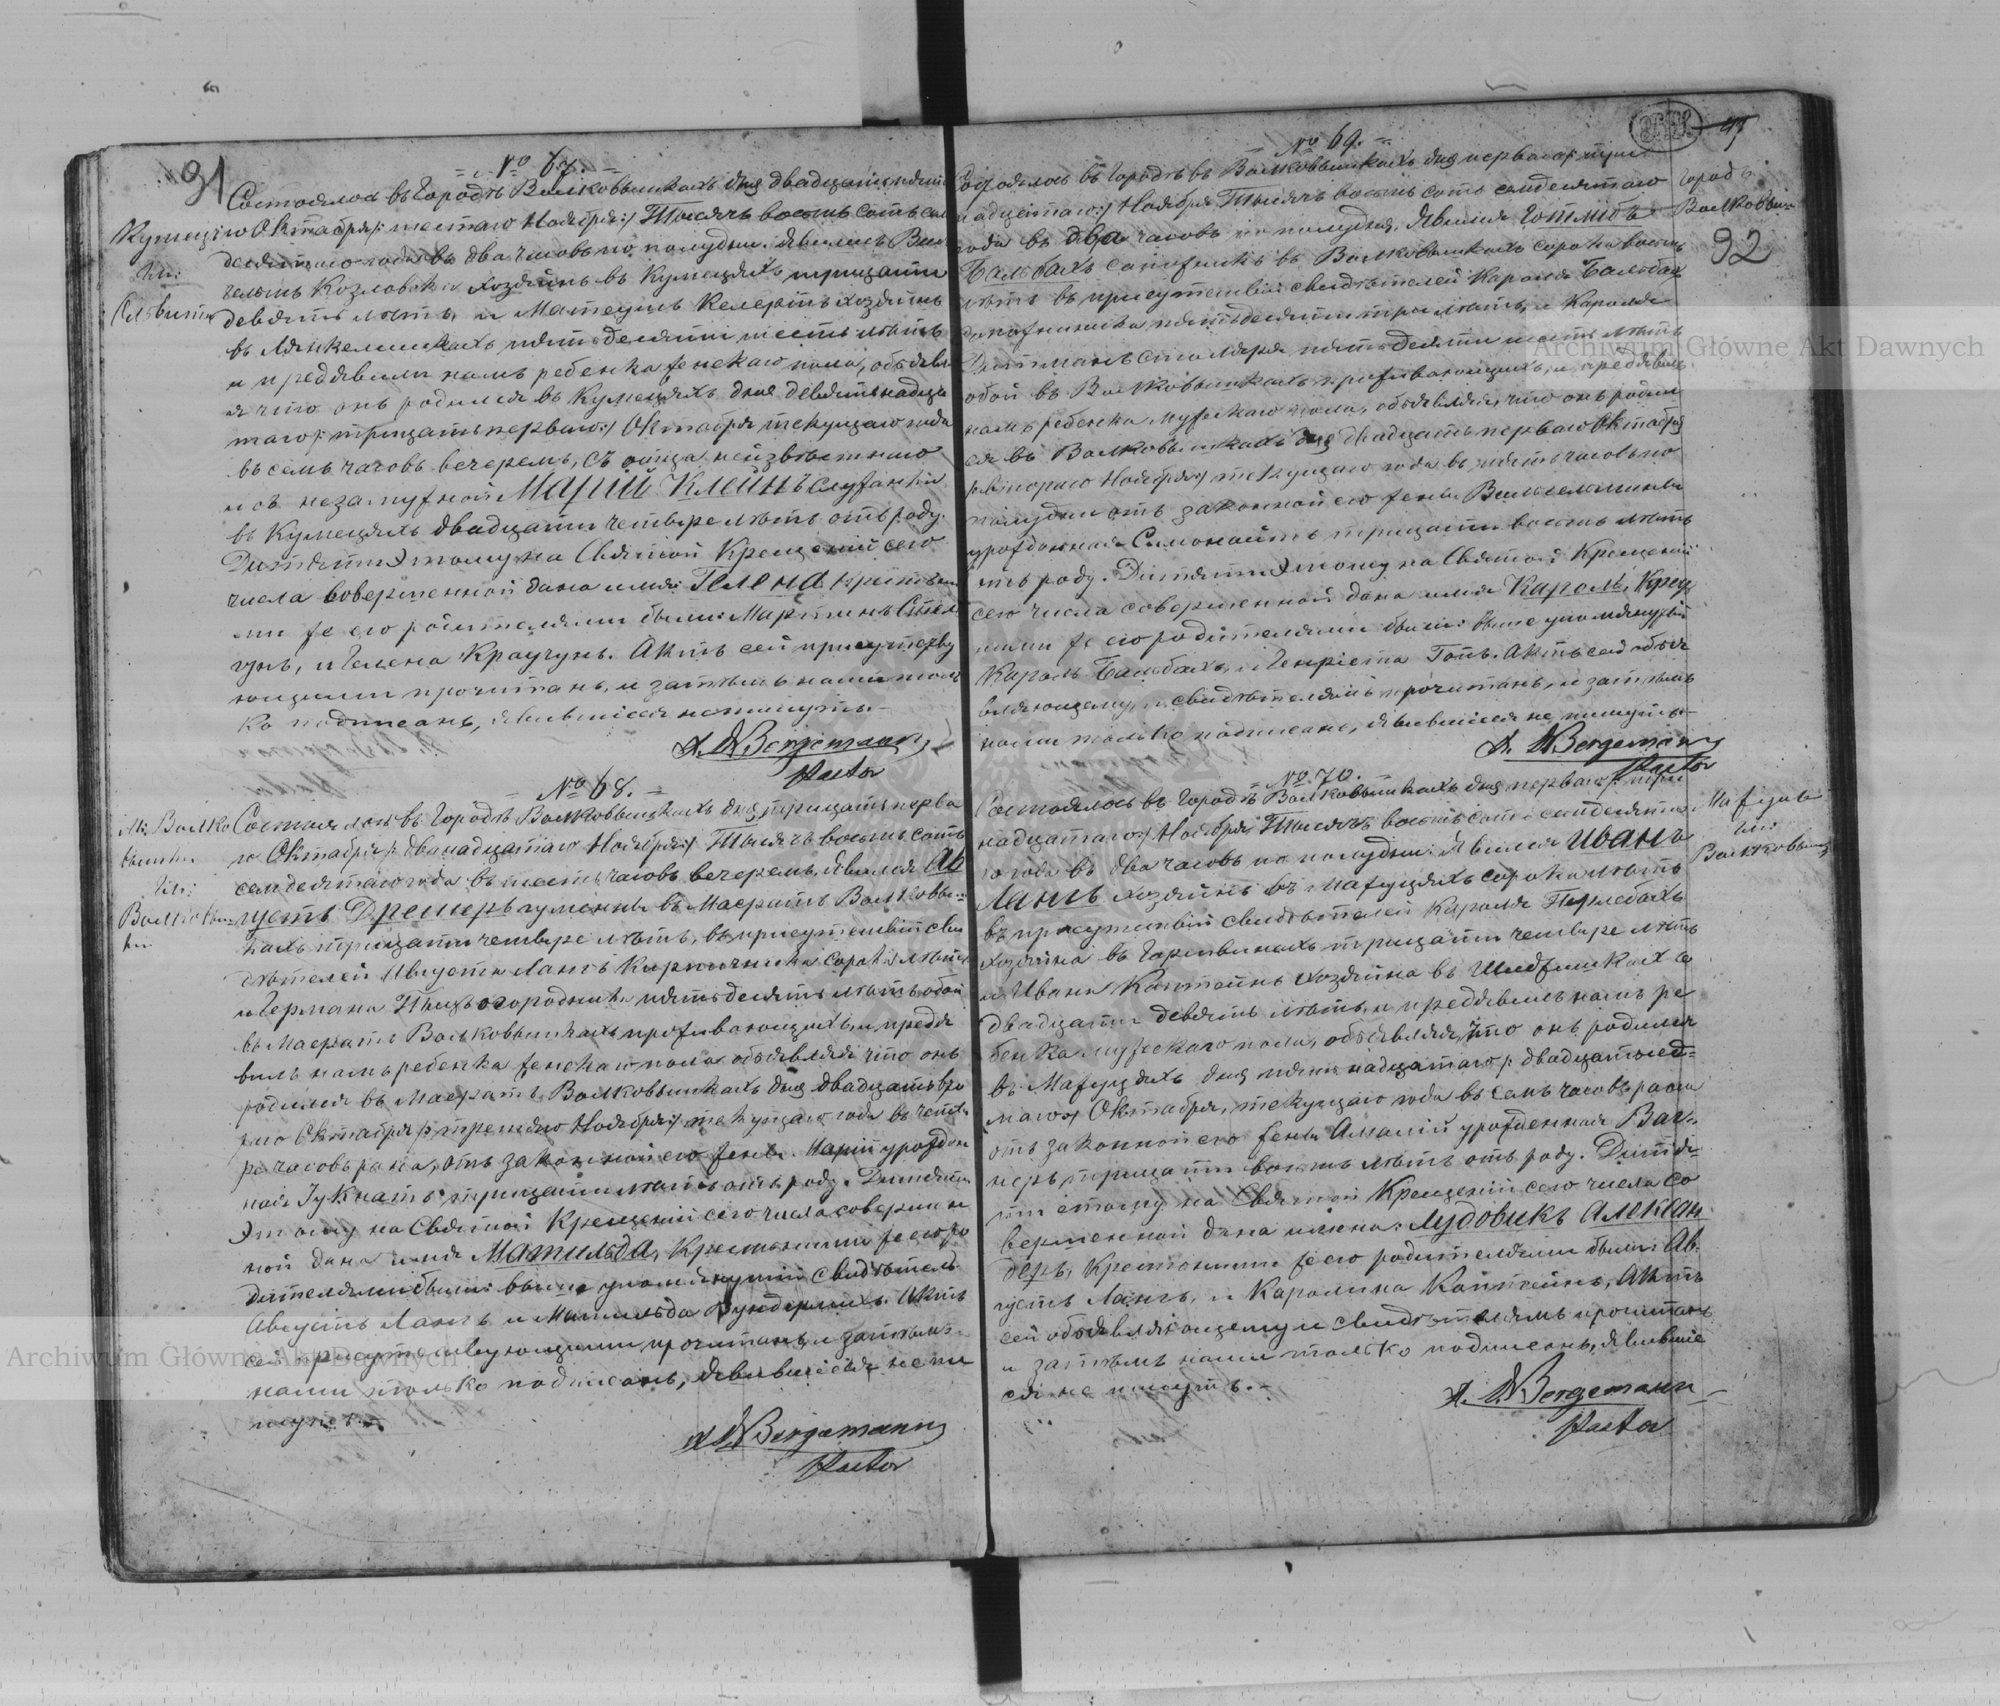 91
№ 67.
Состоялось въ Городѣ Волковышкахъ дня двадцать пят
Кумеціи
го Октября /: шестаго Ноября :/ Тысячъ восемь сотъ сем
десятаго года въ два часовъ по полудни. Явились Виль
гельмъ Козловскі хозяинъ въ Кумецяхъ тридцати
девять лѣтъ, и Матеушъ Келертъ хозяинъ
въ пятьдесяти шесть лѣтъ
и предявили намъ ребенка женскаго пола, объявля
я что онъ родился въ Кумецяхъ дня девятьнадца
таго /: тридцать перваго :/ Октября текущаго года
въ семь часовъ вечеремъ, съ отца неизвѣстнаго
и съ незамужной Маріи Клейнъ служанки
въ Кумецяхъ двадцати четыре лѣтъ отъ роду.
Дитяти Этому на Святой Крещеній сего
числа совершенной дана имя Гелена, крестны
ми же его родителями были: Мартинъ
и Гелена Краучунъ. Актъ сей присутству
ющими прочитанъ, и затѣмъ нами толь
ко подписанъ, явившіеся непишутъ.
A. W Bergemann
Pastor
№ 68.
М. Волко
вышки
Состоялось въ Городѣ Волковышкахъ дня тридцать перва
го Октября /: двенадцатаго Ноября :/ Тысячъ восемь сотъ
семдесятаго года въ шесть часовъ вечеремъ. Явился Ав
густъ Дремеръ гуменны въ Маератѣ Волковы-
кахъ тридцати четыре лѣтъ, въ присутствіи сви
дѣтелей Августа Лангъ Кирпичника сорокъ лѣтъ
и Германа огородника пятьдесять лѣтъ обой
въ Маератѣ Волковышкахъ проживающихъ, и предя
вилъ намъ ребенка женскаго пола объявляя что онъ
родился въ Маератѣ Волковышкахъ дня двадцать вто
раго Октября /: третяго Ноября :/ текущаго года въ четы
ре часовъ рана, отъ законной его жены Маріи урожден
ная Гукнатъ тридцати лѣтъ отъ роду. Дитяти
Этому на Святой Крещеній сего числа соверше
ной дана имя Матильда, Крестными же его ро
дителями были: выше упомянутій свидѣтель
Августъ Лангъ и Матильда Вундерлихъ. Актъ
сей присутствующими прочитанъ, и затѣмъ
нами только подписанъ, Явившіеся непи
шутъ.
A W Bergemann
Pastor
№ 69.
Состоялось въ Городѣ въ Волковышкахъ дня перваго /: трин
надцатаго :/ Ноября Тысячъ восемь сотъ семдесятаго
Городъ
Волковыш
92
года въ два часовъ по полудни, Явился Готлибъ
Бальбахъ сапожникъ въ Волковышкахъ сорока восемь
лѣтъ въ присутствіи свидѣтелей Кароля Бальбах
сапожника пятьдесяти три лѣтъ, и Кароля
Дитманъ столяря пятьдесяти шесть лѣтъ
обой въ Волковышкахъ проживающихъ, и предявилъ
намъ ребенка мужскаго пола, объявляя, что онъ родил
ся въ Волковышкахъ дня двадцать перваго Октября
/: втораго Ноября :/ текущаго года въ пять часовъ по
полудни отъ законной его жены Вильгельмины
урожденная Симонайтъ тридцати восемь лѣтъ
отъ роду. Дитяти Этому на Святой Крещеній
сего числа совершенной дана имя Кароль, Крест
ными же его родителями были: выше упомянутый
Кароль Бальбахъ, и Генріета Гопъ. Актъ сей объя
вляющему, и свидѣтелямъ прочитанъ, и затѣмъ
нами только подписанъ, Явившіеся не пишутъ.
A. W Bergemann
Pastor
№ 70.
Состоялось въ Городѣ Волковышкахъ дня перваго /: трин
надцатаго :/ Ноября Тысячъ восемь сотъ семдесята
го года въ два часовъ по полудни. Явился Иванъ
Лангъ хозяинъ въ Мажуцяхъ сорока лѣтъ
Волковыш
въ присутствіи свидѣтелей Кароля Перлебахъ
хозяина въ тридцати четыре лѣтъ
и Ивана Каптайнъ хозяина въ
двадцати девять лѣтъ, и предявилъ намъ ре
бенка мужескаго пола, объявляя, что онъ родился
въ Мажуцяхъ дня пятьнадцатаго /: двадцатьсед-
маго :/ Октября, текущаго года въ семь часовъ рана
отъ законной его жены Амаліи урожденная Ваг-
неръ, тридцати восемь лѣтъ отъ роду. Дитя-
ти етому на Святой Крещеній сего числа со
вершенной дана имена: Лудовикъ Александ
деръ, Крестными же его родителями были: Ав-
густъ Лангъ, и Каролина Каптейнъ, Актъ
сей объявляющему и свидѣтелямъ прочитанъ
и затѣмъ нами только подписанъ, Явившіе
ся не пишутъ.
A. W Bergemann
Pastor
Archiwum Główne Akt Dawnych
Archiwum Główne Akt Dawnych